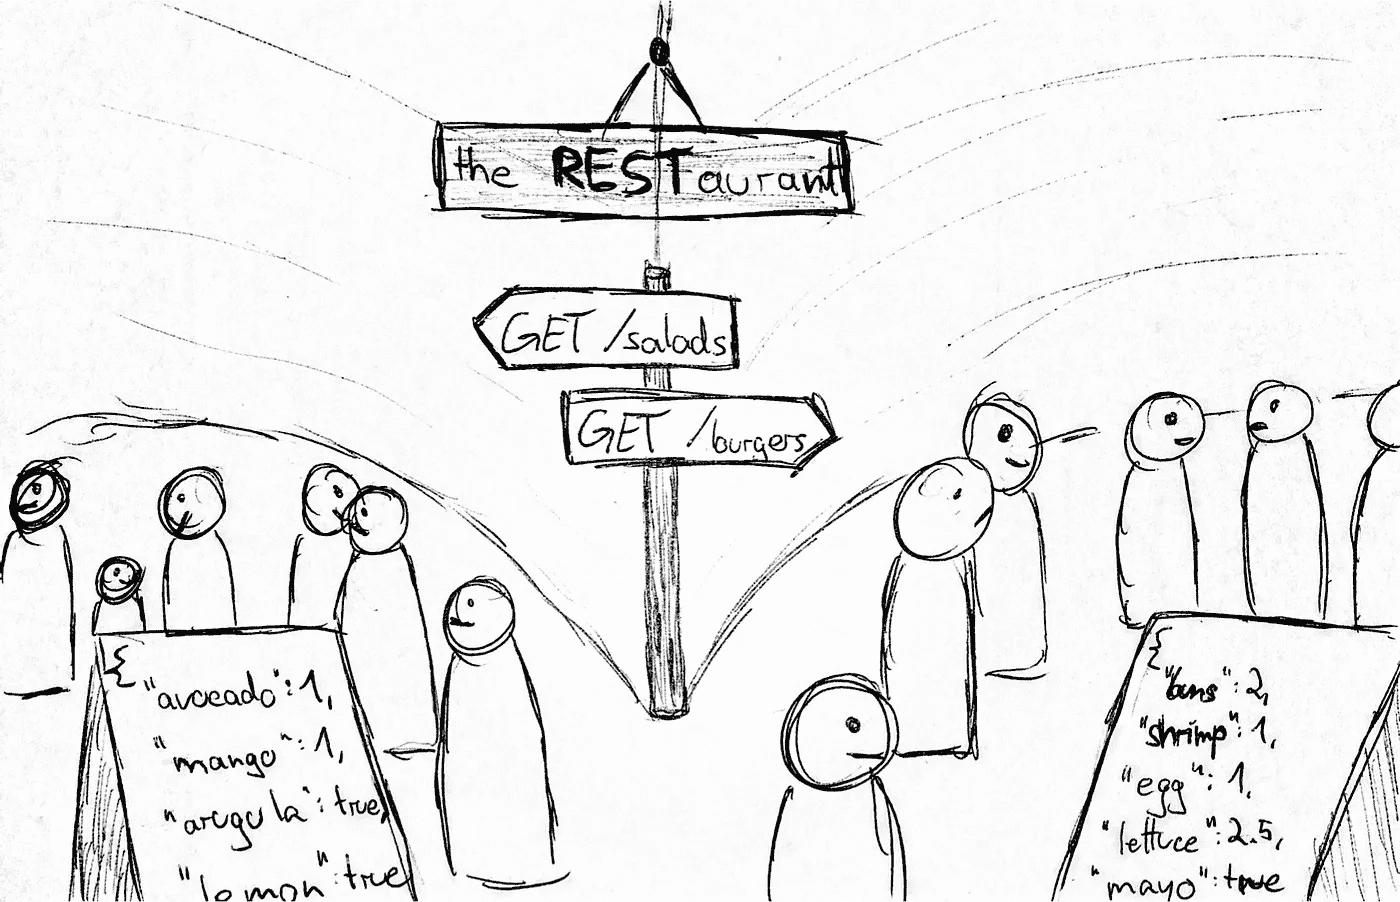 the RESTaurant
GET /salads
GET /burgers
{
"avocado": 1,
"mango": 1,
"arugula": true,
"lemon": true
{
"buns": 2,
"shrimp": 1,
"egg": 1,
"lettuce": 2.5,
"mayo": true